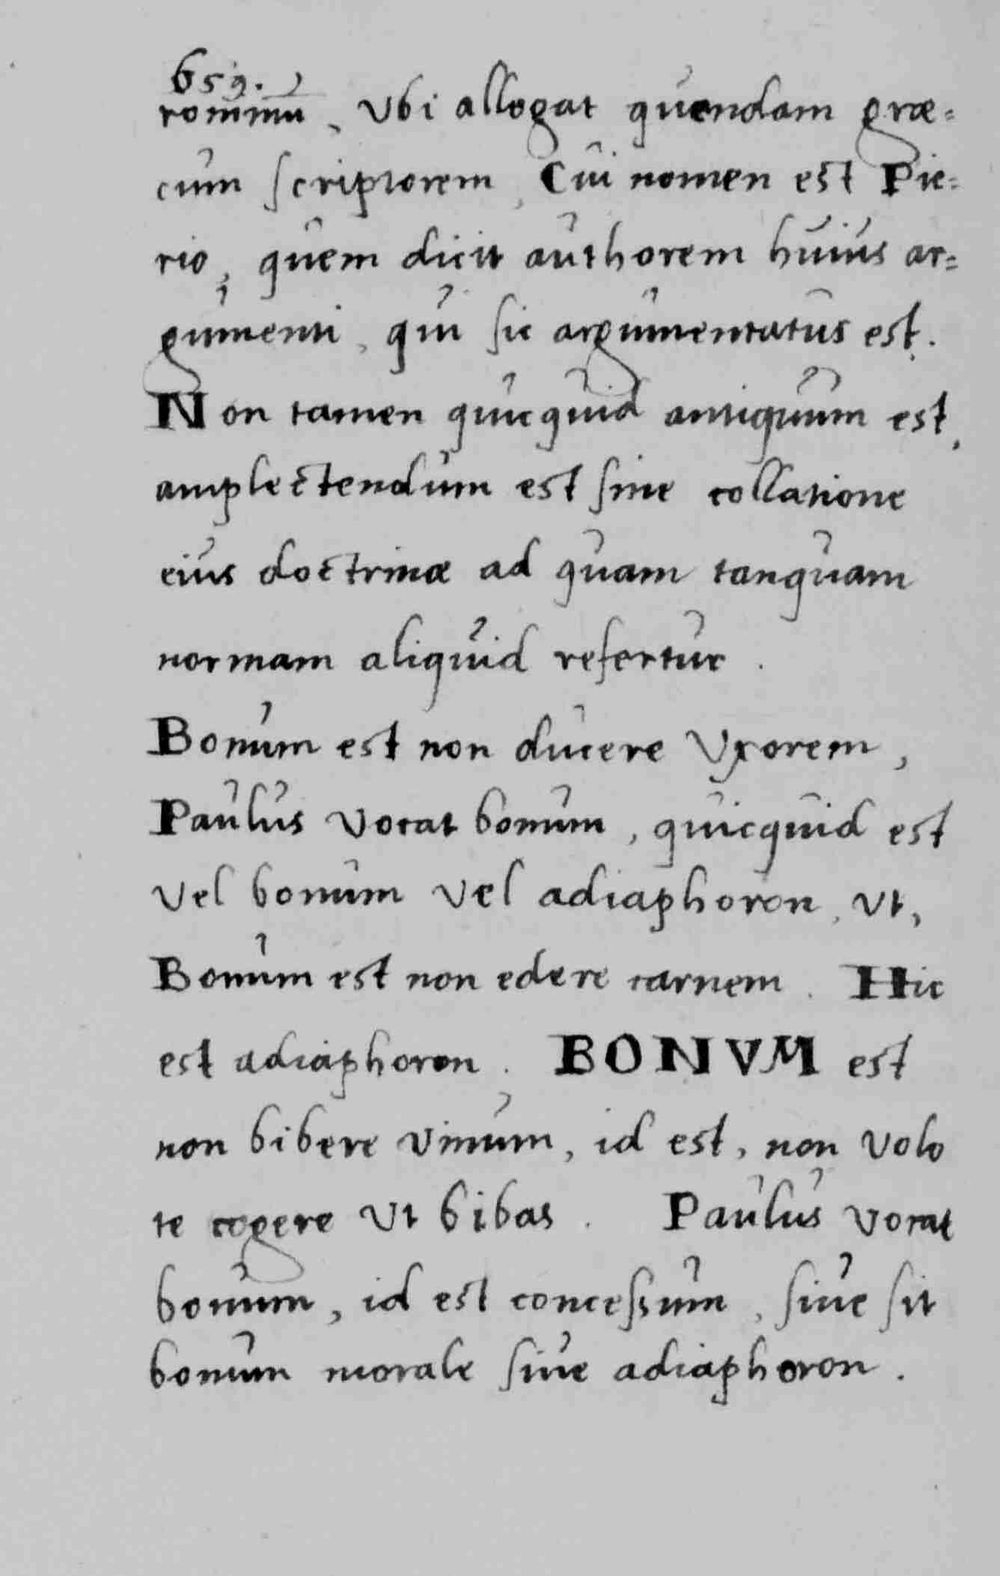 659.
ronimū, Vbi allegat quendam græ=
cum scriptorem, Cui nomen est Pie=
rio, quem dicit authorem huius ar=
gumenti, qui sic argumentatus est.
Non tamen quicquid antiquum est,
amplectendum est sine collatione
eius doctrinæ ad quam tanquam
normam aliquid refertur.
Bonum est non ducere Vxorem,
Paulus vocat bonum, quicquid est
Vel bonum Vel adiaphoron, Vt,
Bonum est non edere carnem. Hic
est adiaphoron. BONVM est
non bibere Vinum, id est, non Volo
te cogere Vt bibas. Paulus vocat
bonum, id est concessum, siue sit
bonum morale siue adiaphoron.